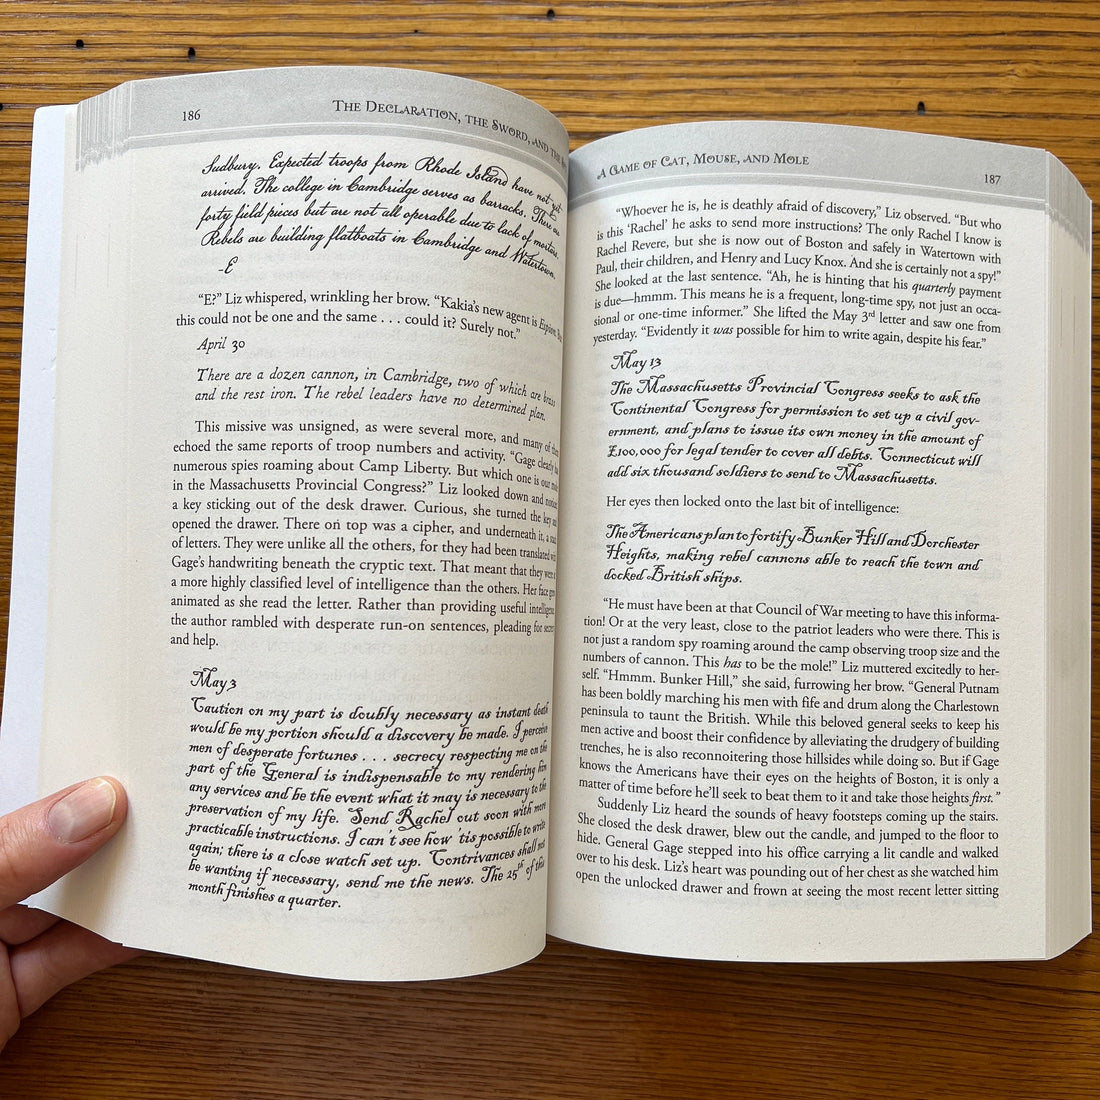 186
THE DECLARATION, THE SWORD, AND THE
Sudbury. Expected troops from Rhode Island have not yet
arrived. The college in Cambridge serves as barracks. There are
forty field pieces but are not all operable due to lack of mortars.
Rebels are building flatboats in Cambridge and Watertown.
-E
“E?” Liz whispered, wrinkling her brow. “Kakia’s new agent is
this could not be one and the same . . . could it? Surely not.”
April 30
There are a dozen cannon, in Cambridge, two of which are brass
and the rest iron. The rebel leaders have no determined plan.
This missive was unsigned, as were several more, and many of
echoed the same reports of troop numbers and activity. “Gage
numerous spies roaming about Camp Liberty. But which one is our
in the Massachusetts Provincial Congress?” Liz looked down and
a key sticking out of the desk drawer. Curious, she turned the key
opened the drawer. There on top was a cipher, and underneath it, a
of letters. They were unlike all the others, for they had been translated
Gage’s handwriting beneath the cryptic text. That meant that they were
a more highly classified level of intelligence than the others. Her face
animated as she read the letter. Rather than providing useful
the author rambled with desperate run-on sentences, pleading for
and help.
May 3
Caution on my part is doubly necessary as instant death
would be my portion should a discovery be made. I perceive
men of desperate fortunes . . . secrecy respecting me on the
part of the General is indispensable to my rendering him
any services and be the event what it may is necessary to the
preservation of my life. Send Rachel out soon with more
practicable instructions. I can’t see how ’tis possible to write
again; there is a close watch set up. Contrivances shall not
be wanting if necessary, send me the news. The 25th of this
month finishes a quarter.
A GAME OF CAT, MOUSE, AND MOLE
187
“Whoever he is, he is deathly afraid of discovery,” Liz observed. “But who
is this ‘Rachel’ he asks to send more instructions? The only Rachel I know is
Rachel Revere, but she is now out of Boston and safely in Watertown with
Paul, their children, and Henry and Lucy Knox. And she is certainly not a spy!”
She looked at the last sentence. “Ah, he is hinting that his quarterly payment
is due—hmmm. This means he is a frequent, long-time spy, not just an occa-
sional or one-time informer.” She lifted the May 3rd letter and saw one from
yesterday. “Evidently it was possible for him to write again, despite his fear.”
May 13
The Massachusetts Provincial Congress seeks to ask the
Continental Congress for permission to set up a civil gov-
ernment, and plans to issue its own money in the amount of
£100,000 for legal tender to cover all debts. Connecticut will
add six thousand soldiers to send to Massachusetts.
Her eyes then locked onto the last bit of intelligence:
The Americans plan to fortify Bunker Hill and Dorchester
Heights, making rebel cannons able to reach the town and
docked British ships.
“He must have been at that Council of War meeting to have this informa-
tion! Or at the very least, close to the patriot leaders who were there. This is
not just a random spy roaming around the camp observing troop size and the
numbers of cannon. This has to be the mole!” Liz muttered excitedly to her-
self. “Hmmm. Bunker Hill,” she said, furrowing her brow. “General Putnam
has been boldly marching his men with fife and drum along the Charlestown
peninsula to taunt the British. While this beloved general seeks to keep his
men active and boost their confidence by alleviating the drudgery of building
trenches, he is also reconnoitering those hillsides while doing so. But if Gage
knows the Americans have their eyes on the heights of Boston, it is only a
matter of time before he’ll seek to beat them to it and take those heights first.”
Suddenly Liz heard the sounds of heavy footsteps coming up the stairs.
She closed the desk drawer, blew out the candle, and jumped to the floor to
hide. General Gage stepped into his office carrying a lit candle and walked
over to his desk. Liz’s heart was pounding out of her chest as she watched him
open the unlocked drawer and frown at seeing the most recent letter sitting